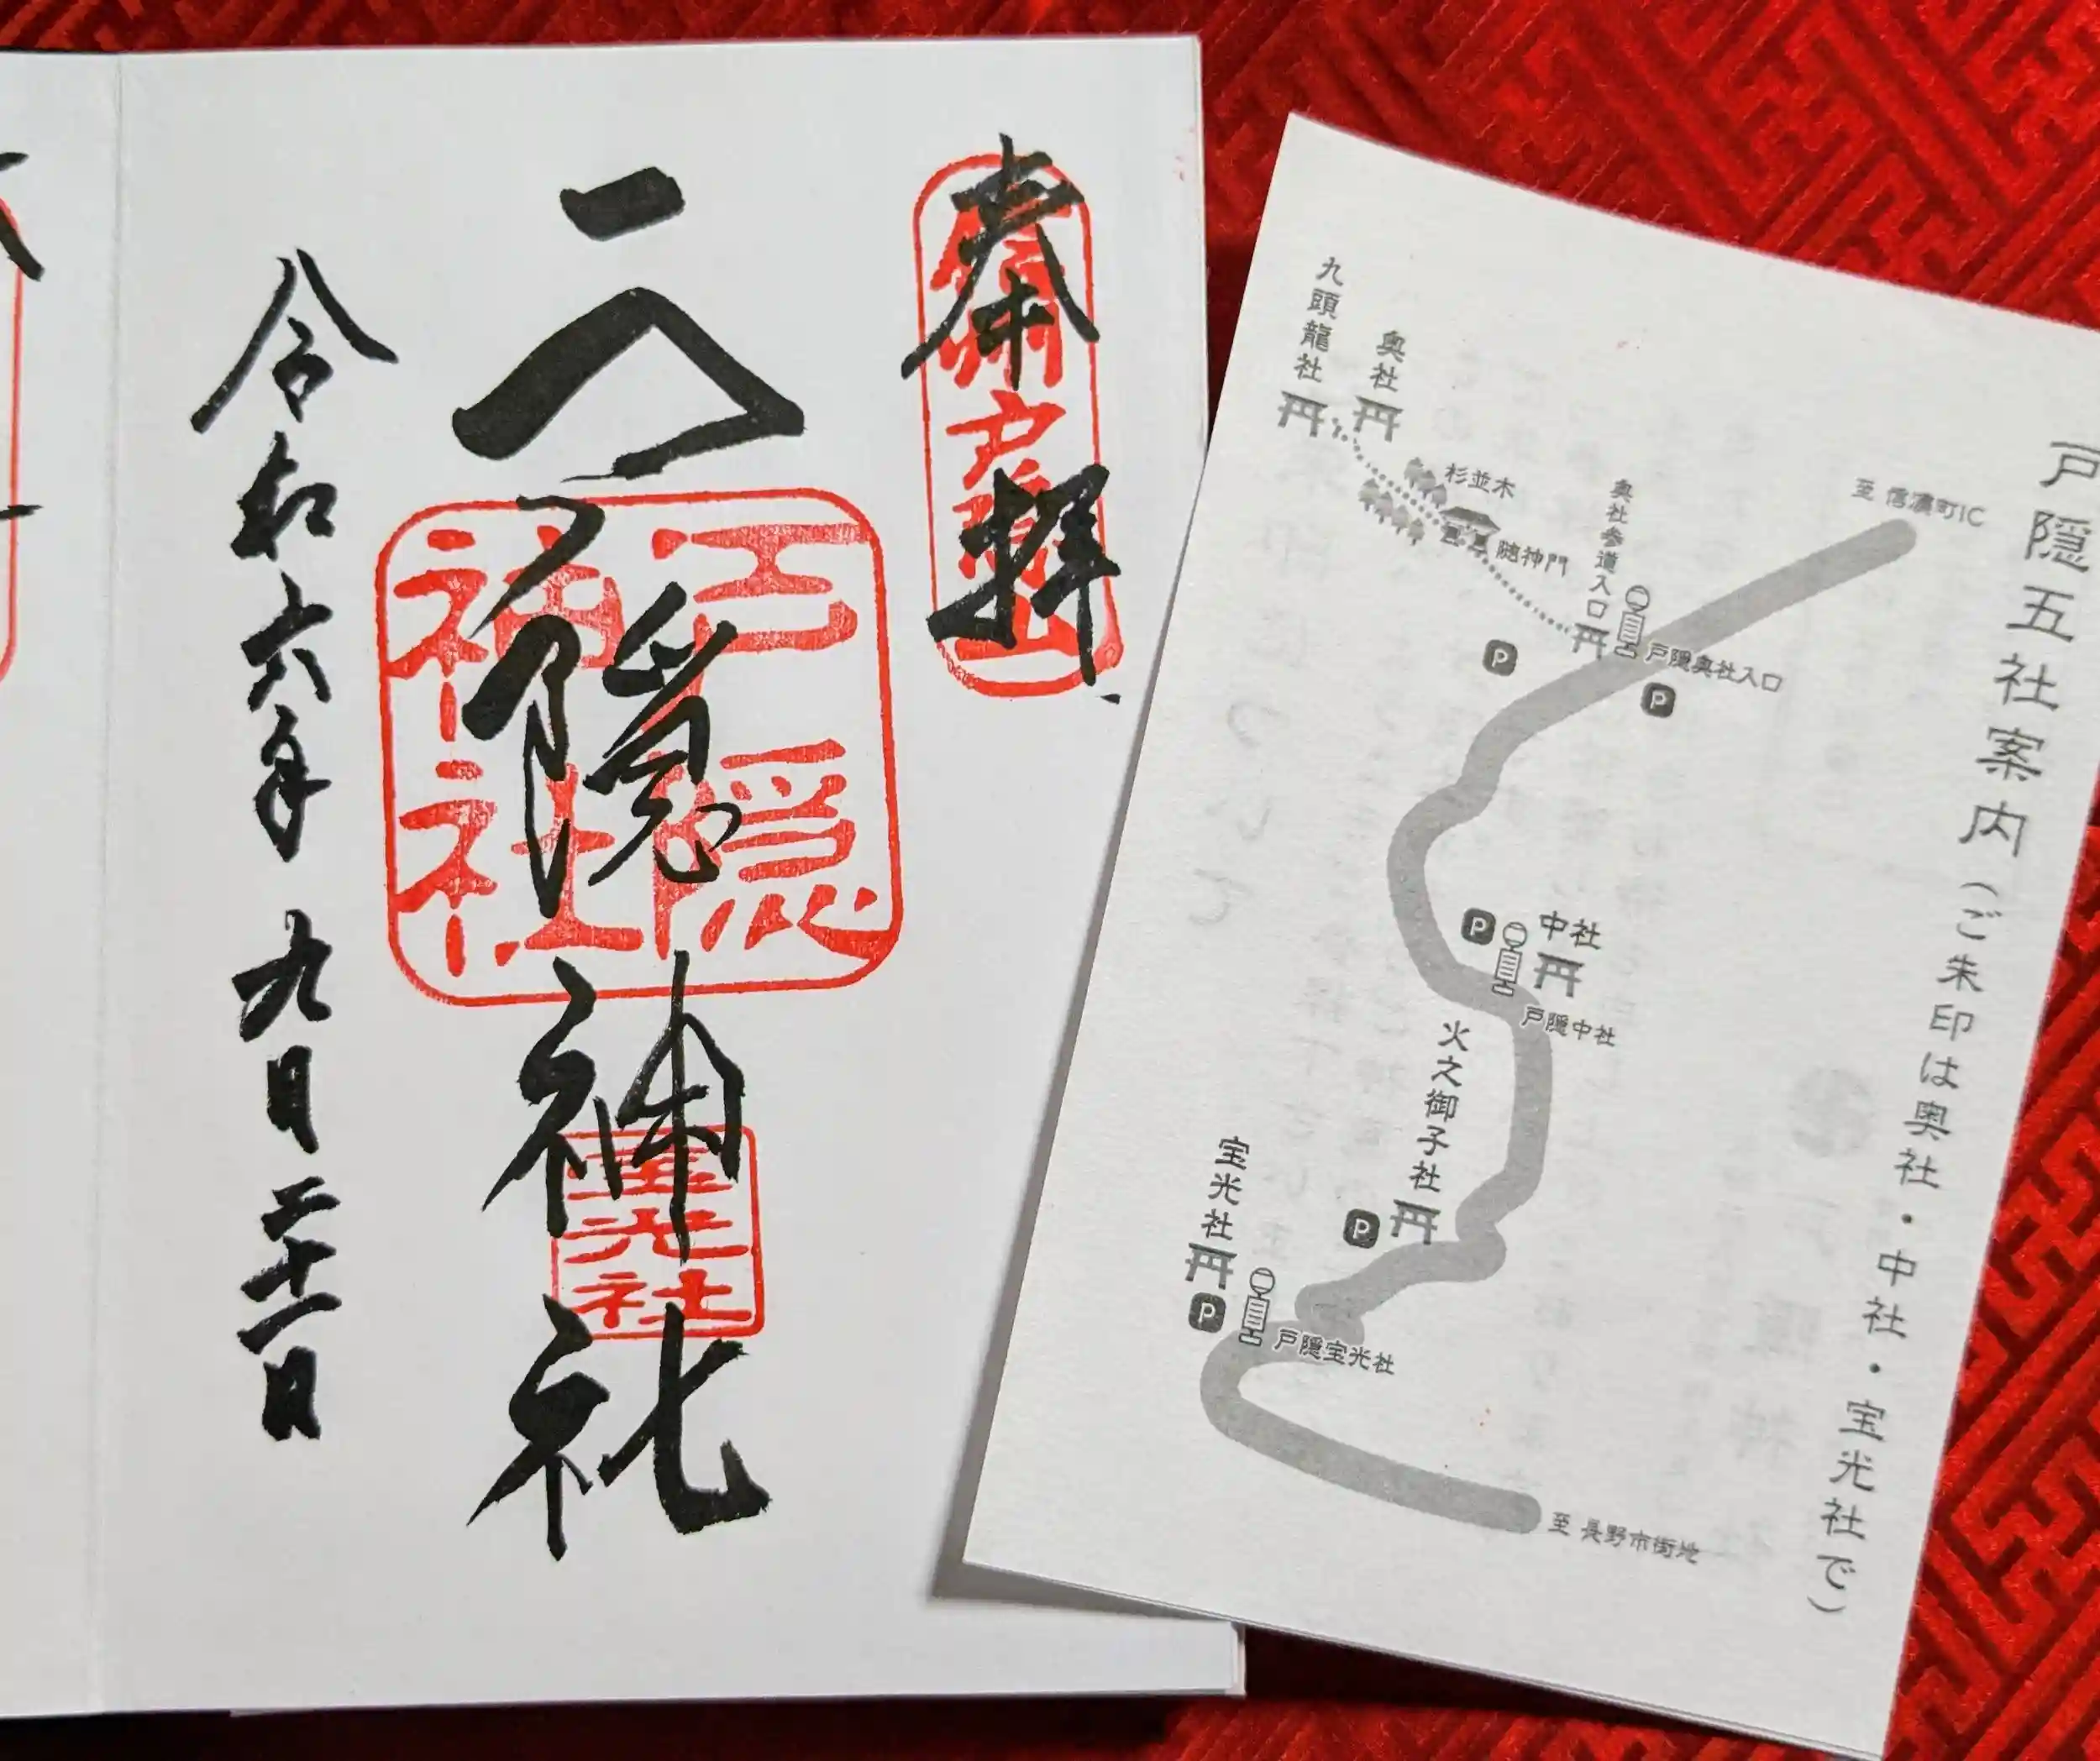 奉拝
信州戸隠山
戸隠神社
戸隠
神社
宝光社
令和六年九月二十一日
戸隠五社案内(ご朱印は奥社・中社・宝光社で)
九頭龍社
奥社
杉並木
随神門
奥社参道入口
至 信濃町IC
戸隠奥社入口
P
P
P
中社
戸隠中社
火之御子社
P
宝光社
P
戸隠宝光社
至 長野市街地